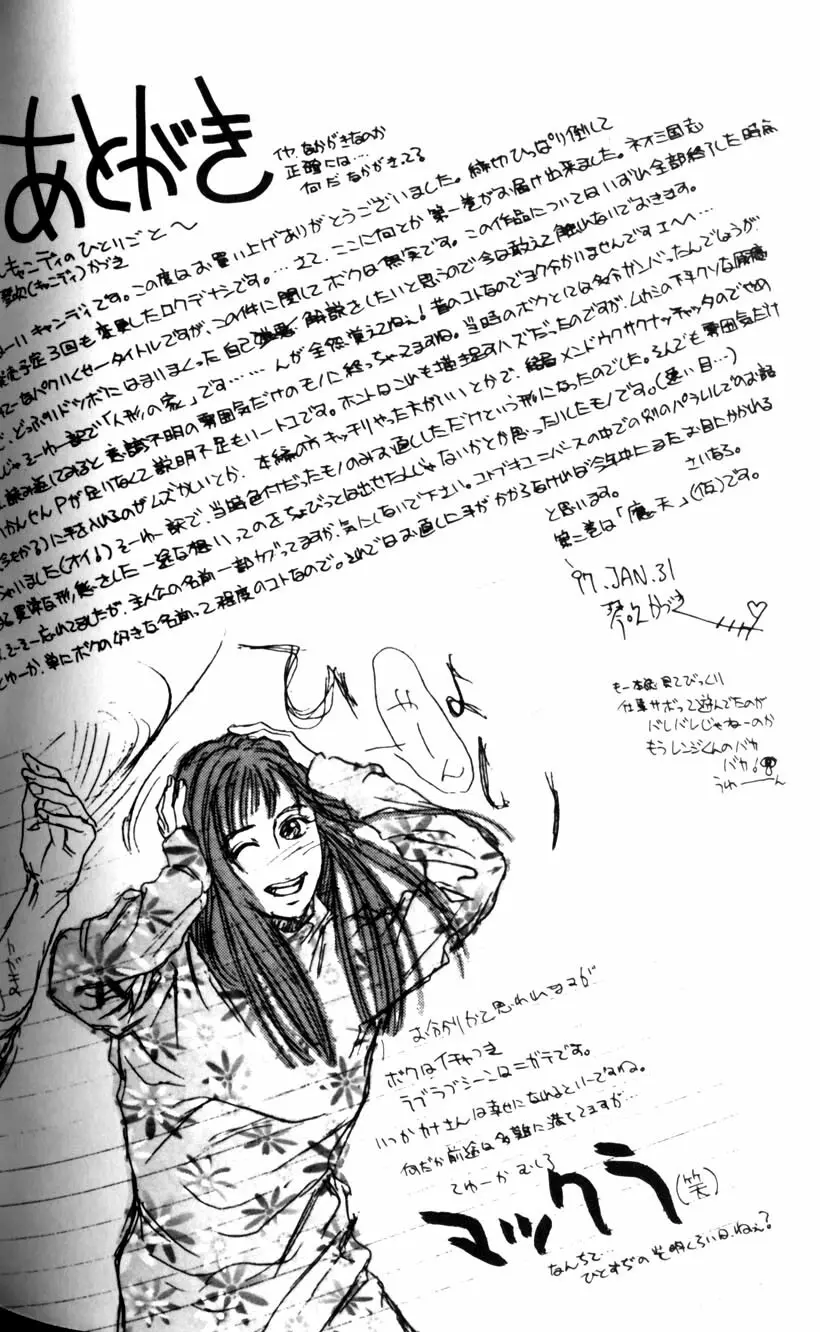 あとがき
イヤ、なかがきなのか
正確には…
何だ なかがきってる
キャンディのひとりごと〜
かづき
キャンディです。この度はお買い上げありがとうございました。締切ひっぱり倒して
発売予定3回も変更したロクデナシです。……さて、ここに何とか第一巻がお届け出来ました。ネオ三国志
パクリくせータイトルですが、この件に関してボクは無実です。この作品についてはいずれ全部終了した時点
どっぷりドツボにはまりまくった自己 解説をしたいと思うので今は敢えて触れないでおきます。
そーゆー訳で「人形の家」です………んが全然覚えてねぇ!昔のコトなのでヨク分かいませんですエヘヘ…
読み返してみると意識不明の雰囲気だけのモノに終っちゃてますね。当時のボクとしては多分ガンバったんでしょうが
かんせんPが足りなくて説明不足もいートコです。ホントはこれも描き足すハズだったのですが、ムカシの下手クソな原稿
に手を入れるのがムズかしいとか、本編の方キッチリやった方がいいとかで、結局メンドウクサクナッチャッタのでやめ
ちゃいました(オイ!)そーゆー訳で、当時色付だったモノのみお直ししただけという形になったのでした。そんでも雰囲気だけ
な形、 した一途な想いってのをちょびっとは出せたんじゃないかとか思ったりしたモノです。(遠い目…)
そーそー忘れてましたが、主人公の名前一部カブってますが、気にしないで下さい。コトブキユニバースの中での別のパラレルでのお話
てゆーか、単にボクの好きな名前って程度のコトなので。それではお直しに手がかからなければ今年中にまたお目にかかれる
と思います。
さいなら。
第二巻は「魔天」(仮)です。
'97.JAN.31
琴吹かづき
も一本
仕事サボって遊んでたのが
バレバレじゃねーのか
もうレンジくんのバカ
バカ!
うゎーーん
ひょい
お分かりかと思われますが
ボクはイチャつき
ラブラブシーンはニガテです。
いつかカナさんは幸せになれるといーですね。
何だか前途は多難に満ちてますが…
てゆーかむしろ
マックラ(笑)
なんちて…
ひとすぢの光明くらい…ねぇ?